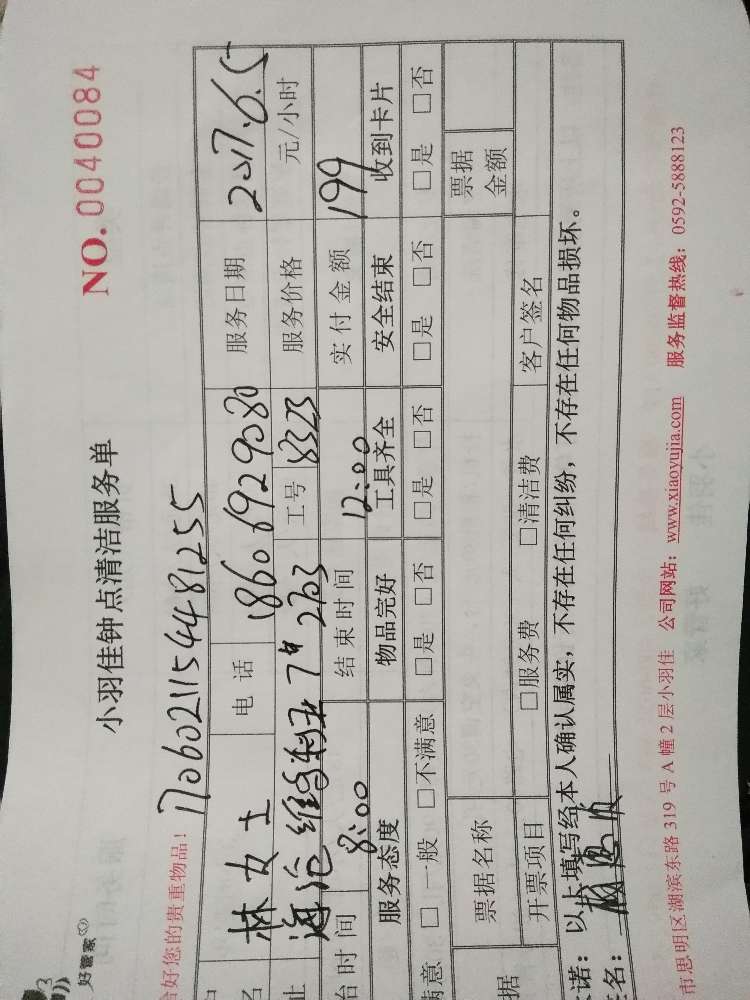 好管家
小羽佳钟点清洁服务单
NO.0040084
给好您的贵重物品! 1706021154481255
名 林女士 电话 18606929080 服务日期 2017.6.5
址 海沧 7# 2703 工号 8323 服务价格 元/小时
始时间 8:00 结束时间 12:00 实付金额 199
服务态度 物品完好 工具齐全 安全结束 收到卡片
满意 □一般 □不满意 □是 □否 □是 □否 □是 □否 □是 □否
据 票据名称 票据金额
开票项目 □服务费 □清洁费 客户签名
诺:以上填写经本人确认属实,不存在任何纠纷,不存在任何物品损坏。
名:
市思明区湖滨东路 319 号 A 幢 2 层小羽佳 公司网站:www.xiaoyujia.com 服务监督热线:0592-5888123